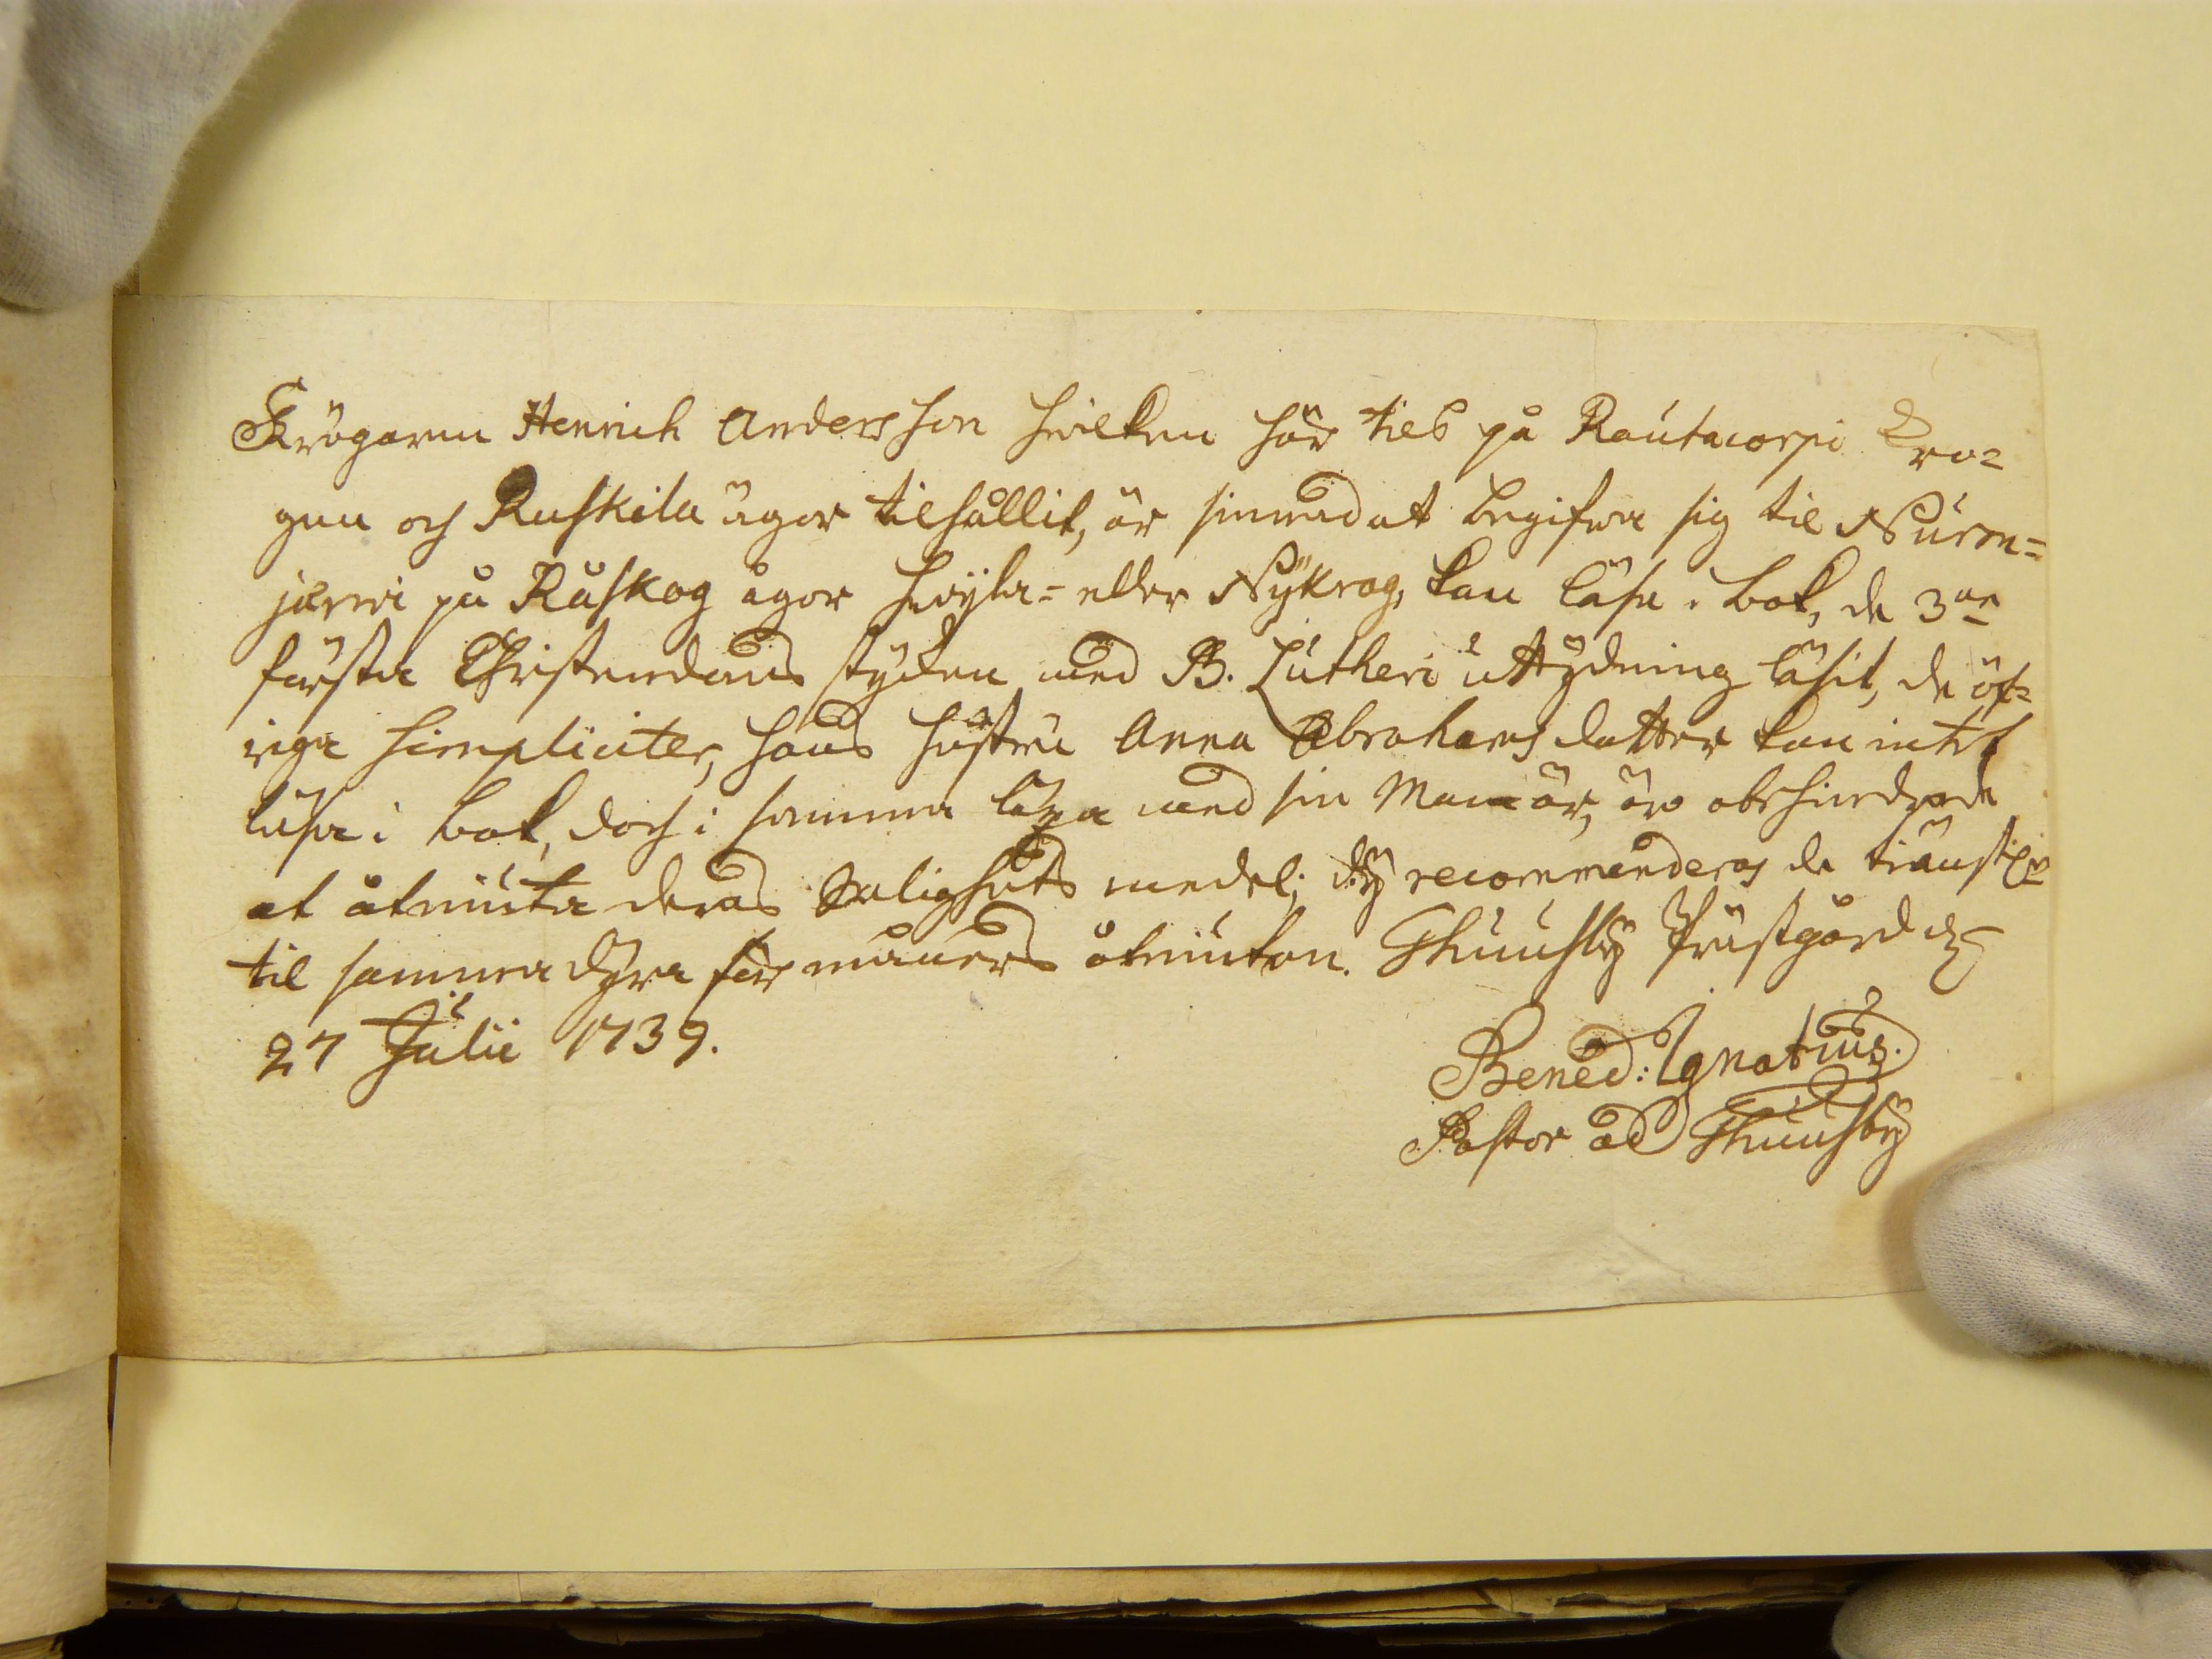 Krögaren Henrich Andersson hwilken här tils på Rautacorpi Kro=
gen och Ruskila ägor tilhållit, är sinnad at begifwa sig til Nurm=
järwi på Råskog ägor Hwÿla= eller Nÿkrog, kan läsa i bok, de 3ne
första Christendoms stÿcken med B. Lutheri uttÿdning läsit, de öf=
riga simpliciter, hans hustru Anna Abrahams datter kan intet
läsa i bok, doch i samma läxa med sin Man är, äro obehindrade
at åtniuta deras Salighets medel; dÿ recommenderas de tiänstl:n
til samma dÿra förmåners åtniutan. Thuusbÿ Prästgård d:
27 Julii 1739.
Bened: Ignatius.
Pastor ad Thuusbÿ